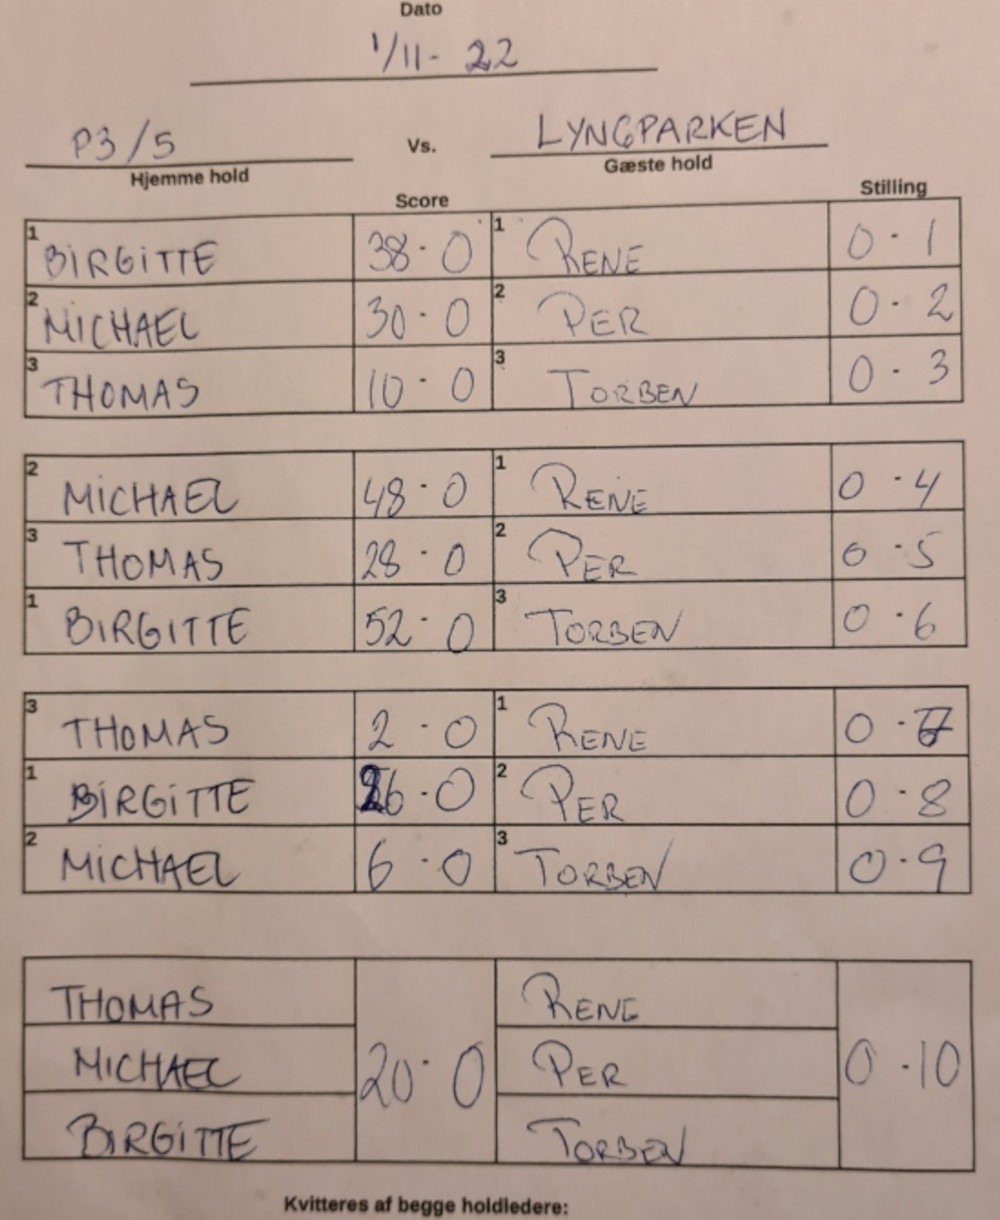 Dato
1/11- 22
P3/5 Vs. LYNGPARKEN
Hjemme hold Gæste hold
Score Stilling
1 BIRGITTE 38-0 1 RENE 0-1
2 MICHAEL 30-0 2 PER 0-2
3 THOMAS 10-0 3 TORBEN 0-3
2 MICHAEL 48-0 1 RENE 0-4
3 THOMAS 28-0 2 PER 0-5
1 BIRGITTE 52-0 3 TORBEN 0-6
3 THOMAS 2-0 1 RENE 0-7
1 BIRGITTE 26-0 2 PER 0-8
2 MICHAEL 6-0 3 TORBEN 0-9
THOMAS RENE
MICHAEL 20-0 PER 0-10
BIRGITTE TORBEN
Kvitteres af begge holdledere: